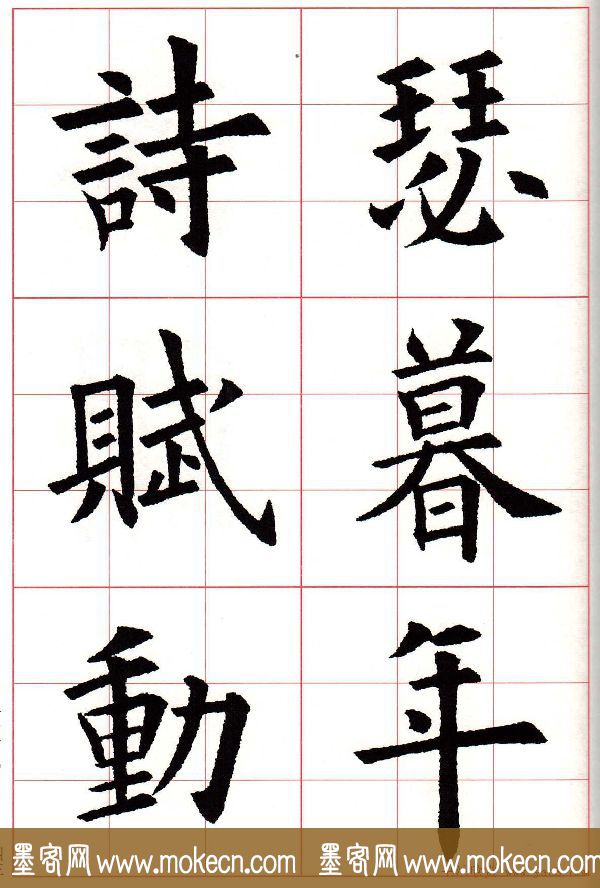 瑟暮年
詩賦動
墨客网 www.mokecn.com 墨客网 www.mokecn.com